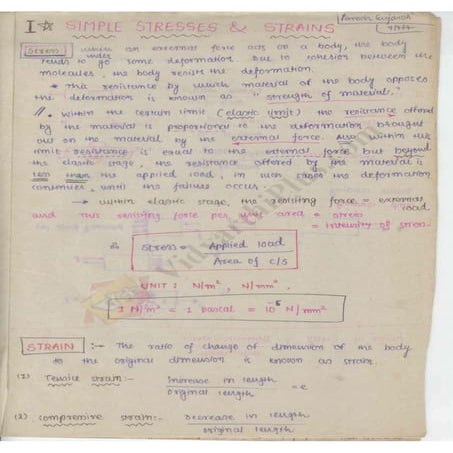 I ☆ SIMPLE STRESSES & STRAINS
Stress: when an external force acts on a body, the body
tends to undergo some deformation. Due to cohesion between the
molecules the body resist the deformation.
* The resistance by which material of the body opposes
the deformation is known as "strength of material."
//. Within the certain limit (elastic limit) the resistance offered
by the material is proportional to the deformation brought
out on the material by the external force. Also within the
limit resistance is equal to the external force but beyond
the elastic stage, the resistance offered by the material is
less than the applied load, in such cases the deformation
continues, until the failure occur.
→ within elastic stage, the resisting force = external load
and this resisting force per unit area = stress
= Intensity of stress.
Stress = Applied load
Area of c/s
UNIT: N/m², N/mm²
1 N/m² = 1 pascal = 10⁻⁶ N/mm²
STRAIN :- The ratio of change of dimension of the body
to the original dimension is known as strain.
(1) Tensile strain:- Increase in length = e
Original length
(2) compressive strain:- Decrease in length
original length